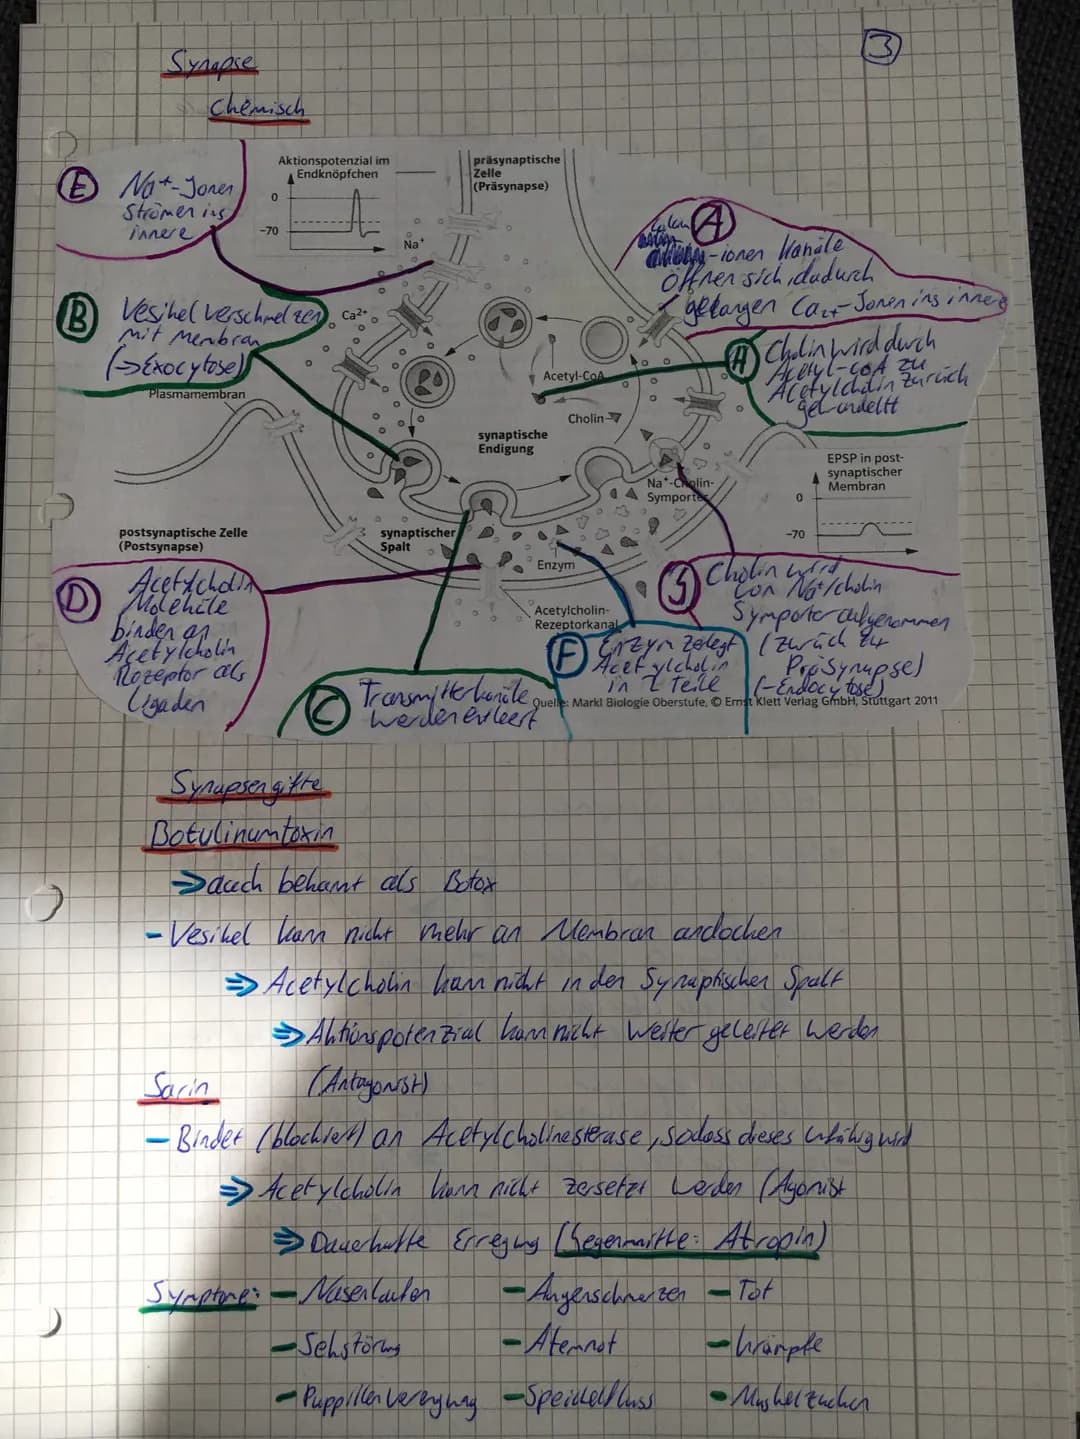 3
Synapse
Chemisch
E
Na⁺-Jonen
Strömen ins
innere
Aktionspotenzial im
Endknöpfchen
0
-70
präsynaptische
Zelle
(Präsynapse)
Na⁺
A
-ionen Kanäle
Öffnen sich, dadurch
gelangen Ca2+-Jonen ins innere
B
Vesikel verschmelzen
mit Membran
(→Exocytose)
Ca²⁺
H
Cholin wird durch
Acetyl-CoA zu
Acetylcholin zurück
gewandelt
Plasmamembran
Acetyl-CoA
Cholin
synaptische
Endigung
Na⁺-Cholin-
Symporter
EPSP in post-
synaptischer
Membran
0
-70
postsynaptische Zelle
(Postsynapse)
synaptischer
Spalt
Enzym
Acetylcholin-
Rezeptorkanal
D
Acetylcholin
Moleküle
binden an
Acetylcholin
Rezeptor als
Ligaden
G
Cholin wird
von Na⁺/cholin
Symporter aufgenommen
(zurück zu
PräSynapse)
(-Endocytose)
F
Enzym zelegt
Acetylcholin
in 2 Teile
C
Transmitterkanäle
werden entleert
Quelle: Markl Biologie Oberstufe, © Ernst Klett Verlag GmbH, Stuttgart 2011
Synapsengifte
Botulinumtoxin
⇒ auch bekannt als Botox
- Vesikel kann nicht mehr an Membran andocken
⇒ Acetylcholin kann nicht in den Synaptischen Spalt
⇒ Aktionspotenzial kann nicht weiter geleitet werden
(Antagonist)
Sarin
- Bindet (blockiert) an Acetylcholinesterase, sodass dieses unfähig wird
⇒ Acetylcholin kann nicht zersetzt werden (Agonist
⇒ Dauerhafte Erregung (Gegenmitte: Atropin)
Symptome: - Nasenlaufen - Augenschmerzen - Tot
- Sehstörung - Atemnot - krämpfe
- Puppillenverengung - Speichelfluss - Muskelzucken